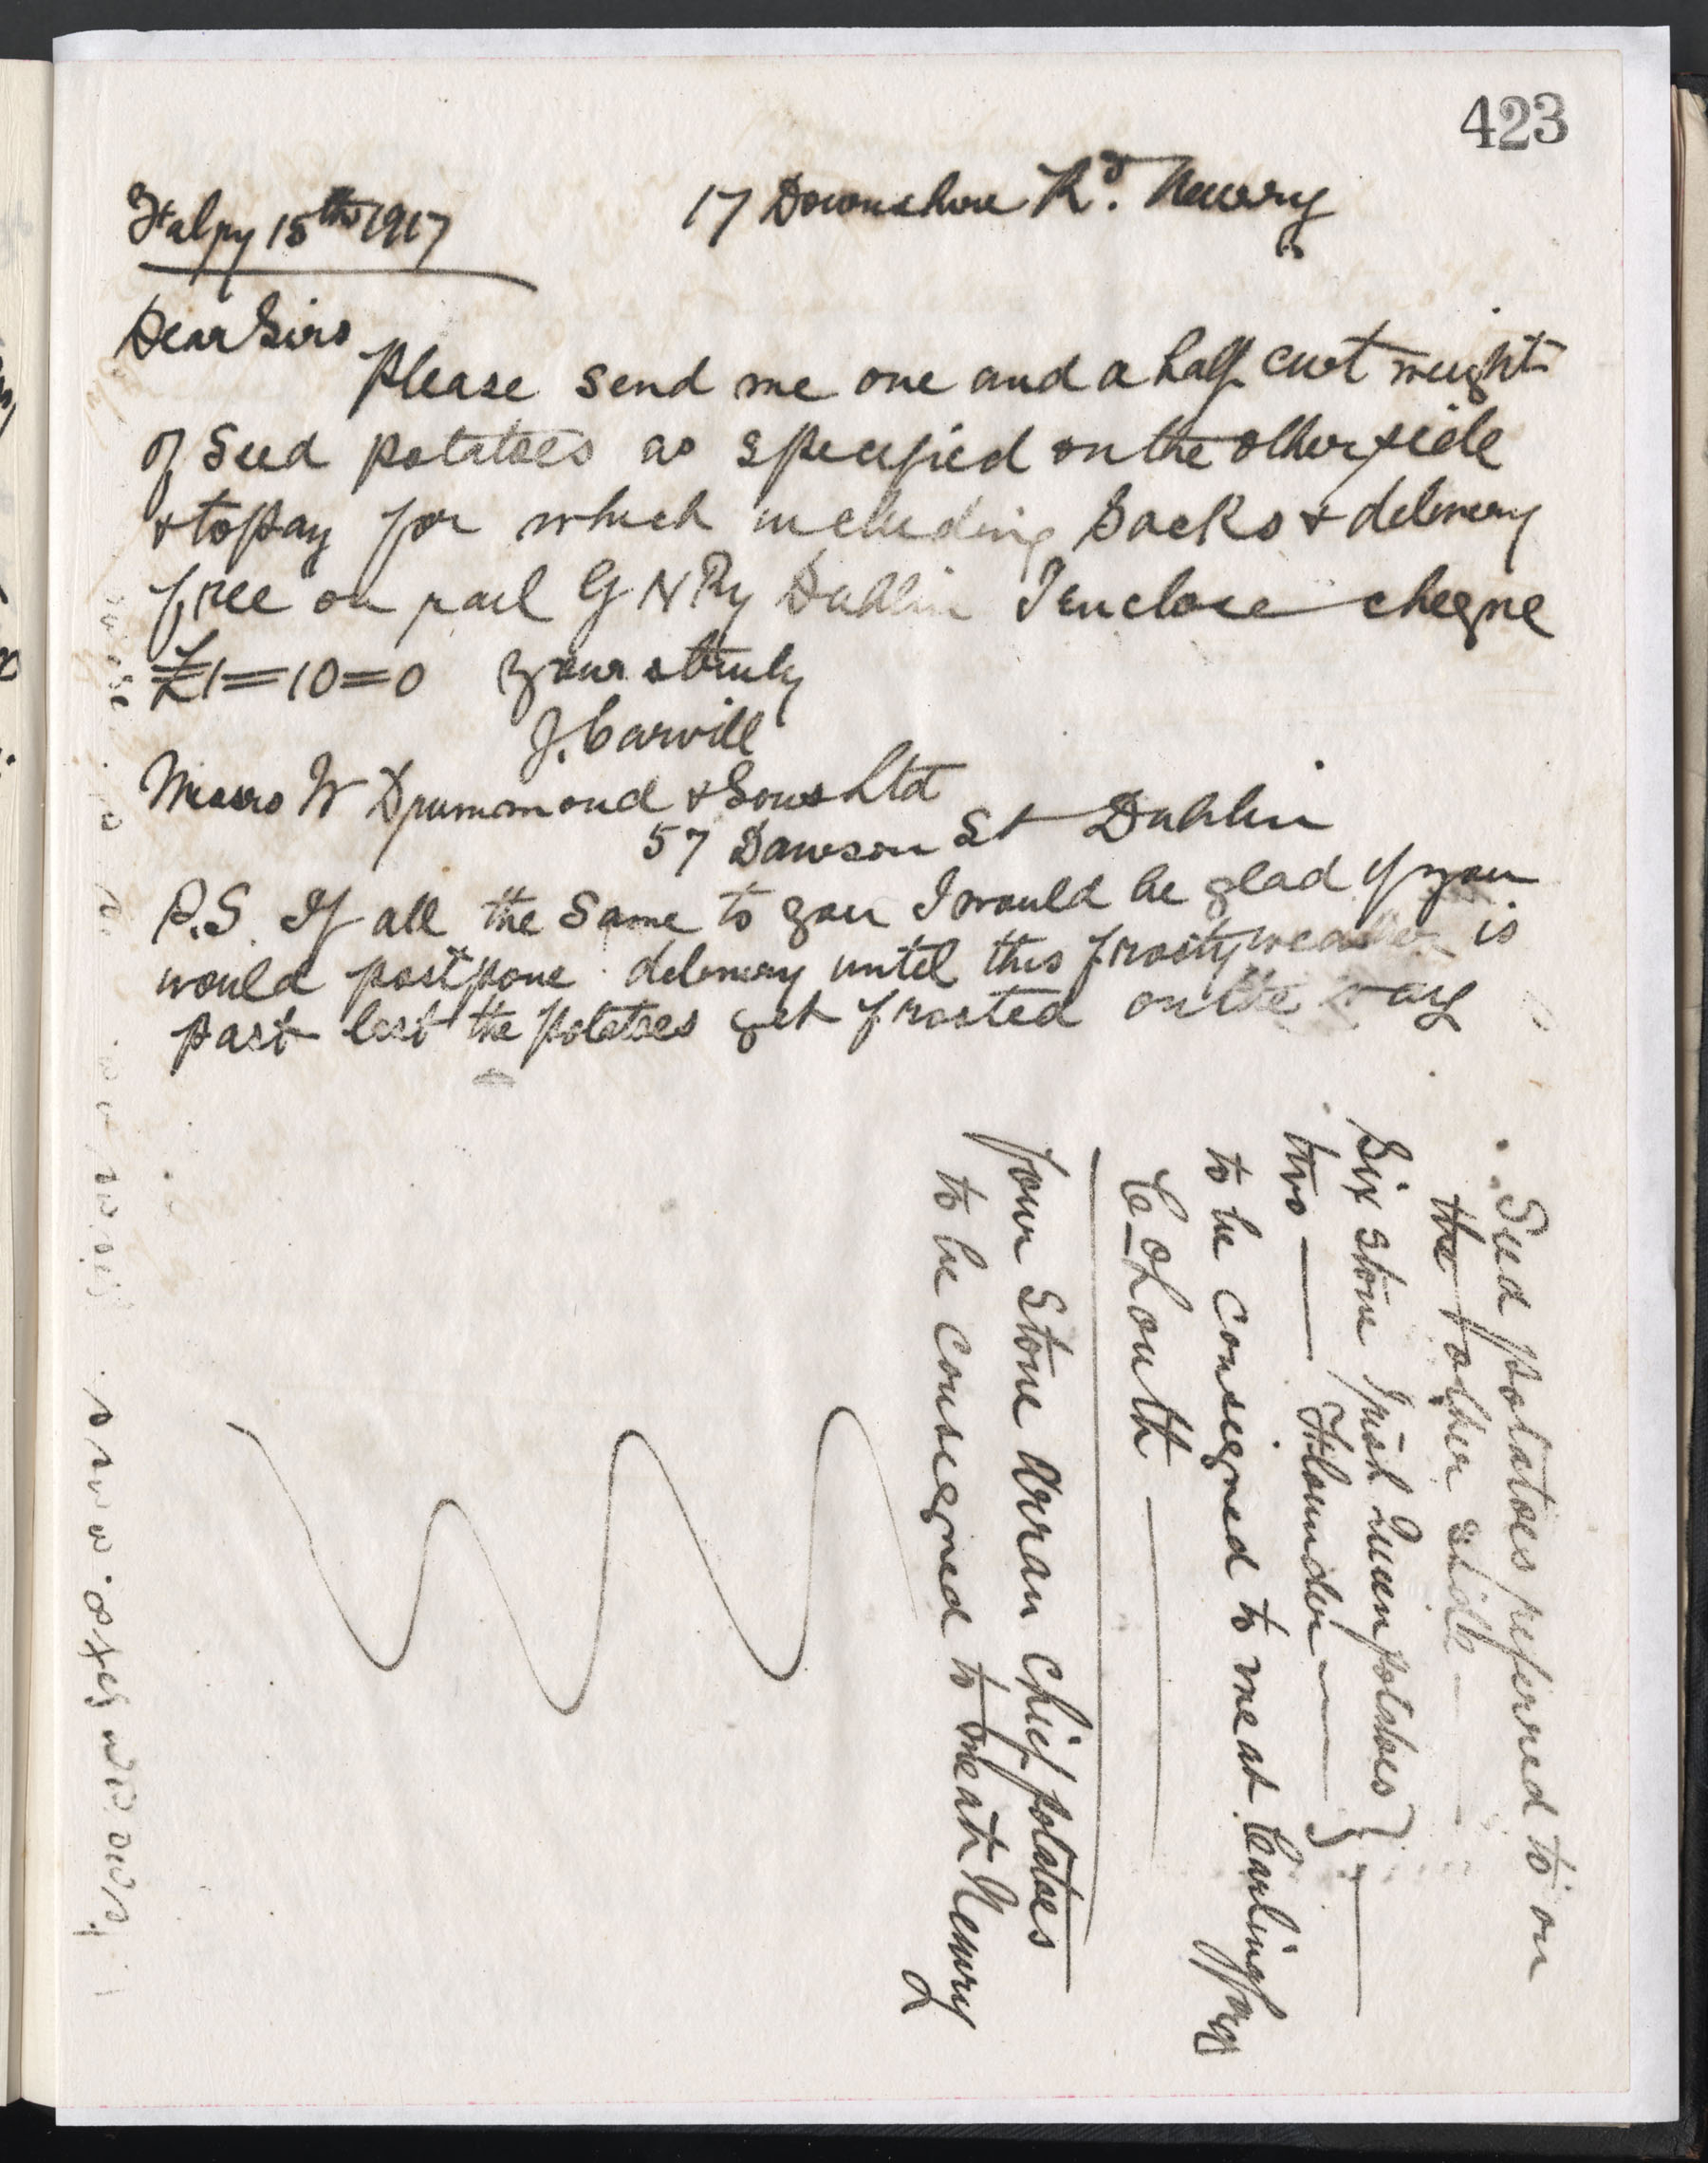 423
17 Downshire Rd. Newry
15th 1917
Dear Sirs
Please send me one and a half cwt weight
of Seed potatoes as specified on the other side
& to pay for which including Sacks & delivery
free on rail G N Ry Dublin I enclose cheque
£1=10=0 yours truly
J. Carvill
Messrs W Drummond & Sons Ltd
57 Dawson St Dublin
P.S. If all the same to you I would be glad if you
would postpone delivery until this frosty weather is
past lest the potatoes get frosted on the way
Seed potatoes referred to on
the other side
Six stone Irish Queen potatoes }
two — — }
to be consigned to me at Carlingford
Co Louth
four Stone Arran Chief potatoes
to be consigned to me at Newry